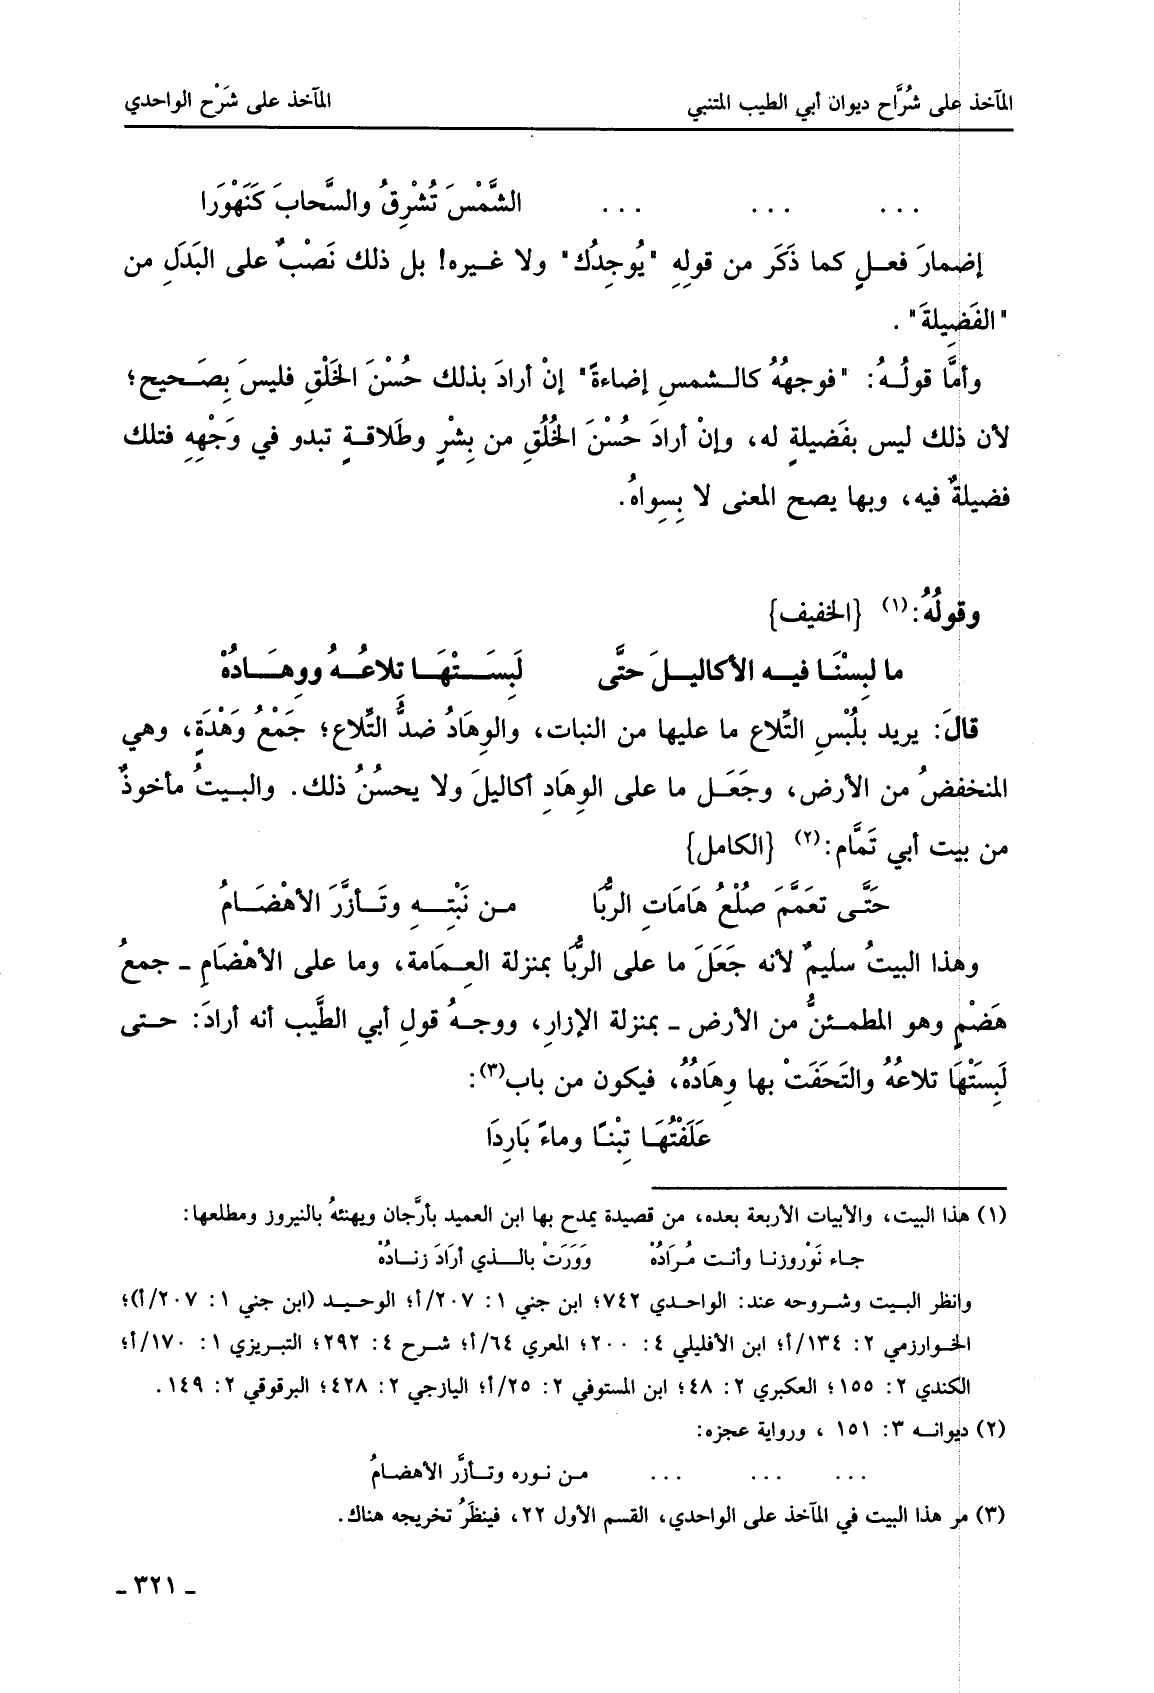 المآخذ على شُرَّاح ديوان أبي الطيب المتنبي المآخذ على شَرْح الواحدي
... ... ... الشَّمْسَ تُشْرِقُ والسَّحابَ كَنَهْوَرا
إضمارَ فعلٍ كما ذَكَر من قولِهِ "يُوجِدُك" ولا غيره! بل ذلك نَصْبٌ على البَدَلِ من
"الفَضِيلةَ".
وأمَّا قولُهُ: "فوجهُهُ كالشمسِ إضاءةً" إنْ أرادَ بذلك حُسْنَ الخَلْقِ فليسَ بِصَحيح؛
لأن ذلك ليس بفَضيلةٍ له، وإنْ أرادَ حُسْنَ الخُلُقِ من بِشْرٍ وطَلاقةٍ تبدو في وَجْهِهِ فتلك
فضيلةٌ فيه، وبها يصح المعنى لا بِسِواهُ.
وقولُهُ:(١) {الخفيف}
ما لبِسْنَا فيه الأكاليلَ حتَّى لَبِسَتْهَا تلاعُهُ ووِهَادُهْ
قالَ: يريد بلُبْسِ التِّلاع ما عليها من النبات، والوِهَادُ ضدُّ التِّلاع؛ جَمْعُ وَهْدَةٍ، وهي
المنخفضُ من الأرض، وجَعَل ما على الوِهَادِ أكاليلَ ولا يحسُنُ ذلك. والبيتُ مأخوذٌ
من بيت أبي تَمَّام:(٢) {الكامل}
حَتَّى تعَمَّمَ صُلْعُ هَامَاتِ الرُّبَا من نَبْتِهِ وتَأزَّرَ الأهْضَامُ
وهذا البيتُ سليمٌ لأنه جَعَلَ ما على الرُّبَا بمنزلة العِمَامة، وما على الأهْضَامِ - جمعُ
هَضْمٍ وهو المطمئنُّ من الأرض - بمنزلة الإزارِ، ووجهُ قولِ أبي الطَّيب أنه أرادَ: حتى
لَبِسَتْهَا تلاعُهُ والتَحَفَتْ بها وِهَادُهُ، فيكون من باب(٣):
عَلَفْتُهَا تِبْنًا وماءً بَارِدَا
(١) هذا البيت، والأبيات الأربعة بعده، من قصيدة يمدح بها ابن العميد بأرَّجان ويهنئهُ بالنيروز ومطلعها:
جاء نَوْروزنا وأنت مُرَادُهْ ووَرَتْ بالذي أرَادَ زنادُهْ
وانظر البيت وشروحه عند: الواحدي ٧٤٢؛ ابن جني ١: ٢٠٧/أ؛ الوحيد (ابن جني ١: ٢٠٧/أ)؛
الخوارزمي ٢: ١٣٤/أ؛ ابن الأفليلي ٤: ٢٠٠؛ المعري ٦٤/أ؛ شرح ٤: ٢٩٢؛ التبريزي ١: ١٧٠/أ؛
الكندي ٢: ١٥٥؛ العكبري ٢: ٤٨؛ ابن المستوفي ٢: ٢٥/أ؛ اليازجي ٢: ٤٢٨؛ البرقوقي ٢: ١٤٩.
(٢) ديوانه ٣: ١٥١، ورواية عجزه:
... ... ... من نوره وتأزَّر الأهضامُ
(٣) مر هذا البيت في المآخذ على الواحدي، القسم الأول ٢٢، فينظَرُ تخريجه هناك.
- ٣٢١ -